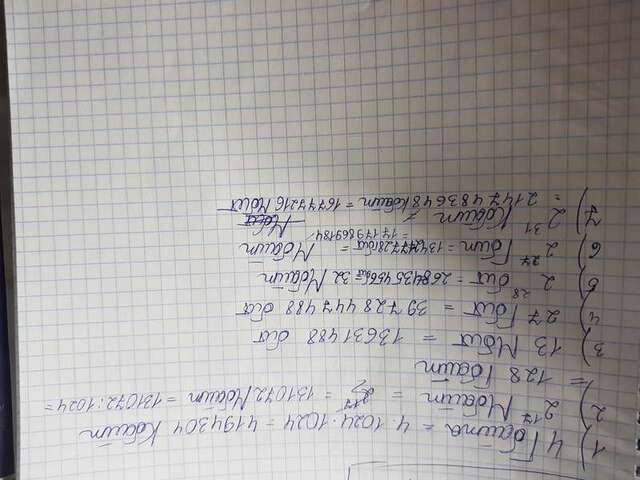 1) 4 Гбайта = 4 · 1024 · 1024 = 4194304 Кбайт
2) 2^17 Мбайт = 2^17 = 131072 Мбайт = 131072 : 1024 =
= 128 Гбайт
3) 13 Мбит = 13631488 бит
4) 27 Гбит = 39728447488 бит
5) 2^28 бит = 268435456 бит = 32 Мбайт
6) 2^27 Гбит = бит = Мбайт
= 17179869184
7) 2^31 Кбайт =
= 2147483648 Кбайт = 16777216 Мбит